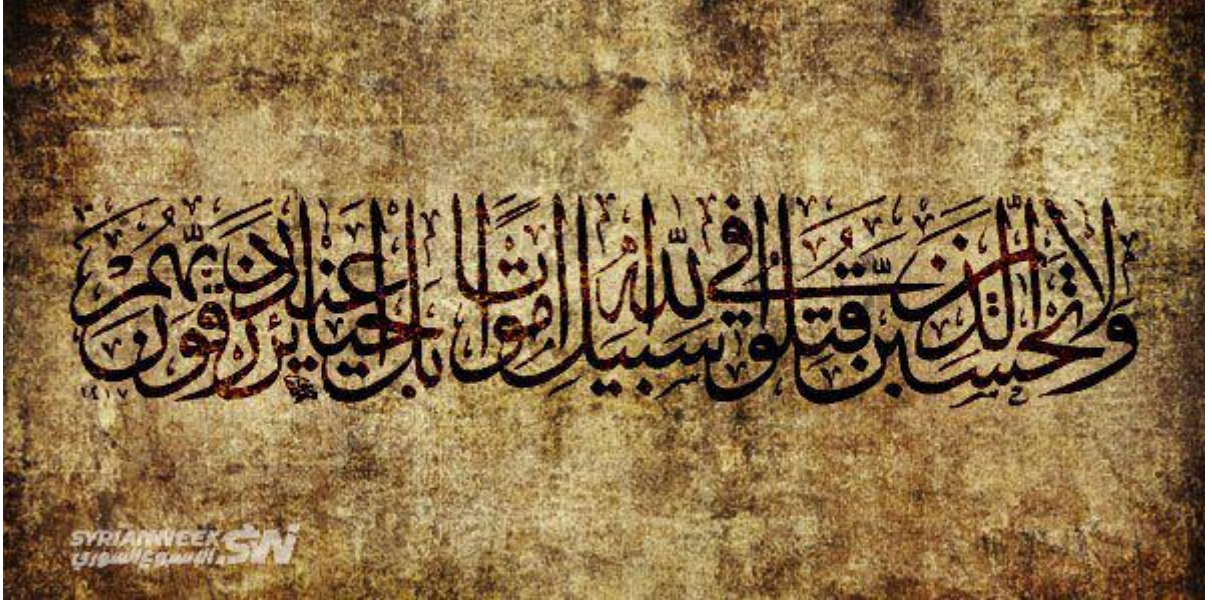 ولا تحسبن الذين قتلوا في سبيل الله أمواتا بل أحياء عند ربهم يرزقون
١٤١٧
SYRIANWEEK SN
الاسبوع السوري